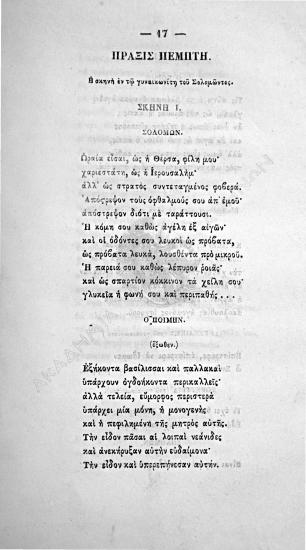 — 17 —
ΠΡΑΞΙΣ ΠΕΜΠΤΗ.
Ἡ σκηνὴ ἐν τῷ γυναικωνίτῃ τοῦ Σολομῶντος.
ΣΚΗΝΗ Ι.
ΣΟΛΟΜΩΝ.
Ὡραία εἶσαι, ὡς ἡ Θέρσα, φίλη μου·
χαριεστάτη, ὡς ἡ Ἱερουσαλήμ·
ἀλλ' ὡς στρατὸς συντεταγμένος φοβερά.
Ἀπόστρεψον τοὺς ὀφθαλμούς σου ἀπ' ἐμοῦ·
ἀπόστρεψον διότι μὲ ταράττουσι.
Ἡ κόμη σου καθὼς ἀγέλη ἐξ αἰγῶν·
καὶ οἱ ὀδόντες σου λευκοὶ ὡς πρόβατα,
ὡς πρόβατα λευκά, λουσθέντα πρὸ μικροῦ.
Ἡ παρειά σου καθὼς λέπυρον ῥοιᾶς·
καὶ ὡς σπαρτίον κόκκινον τὰ χείλη σου·
γλυκεῖα ἡ φωνή σου καὶ περιπαθής . . .
Ο ΠΟΙΜΗΝ.
(ἔξωθεν.)
Ἑξήκοντα βασίλισσαι καὶ παλλακαὶ
ὑπάρχουν ὀγδοήκοντα περικαλλεῖς·
ἀλλὰ τελεία, εὔμορφος περιστερὰ
ὑπάρχει μία μόνη, ἡ μονογενὴς
καὶ ἡ πεφιλημένη τῆς μητρὸς αὐτῆς.
Τὴν εἶδον πᾶσαι αἱ λοιπαὶ νεάνιδες
καὶ ἀνεκήρυξαν αὐτὴν εὐδαίμονα·
Τὴν εἶδον καὶ ὑπερεπῄνεσαν αὐτήν.